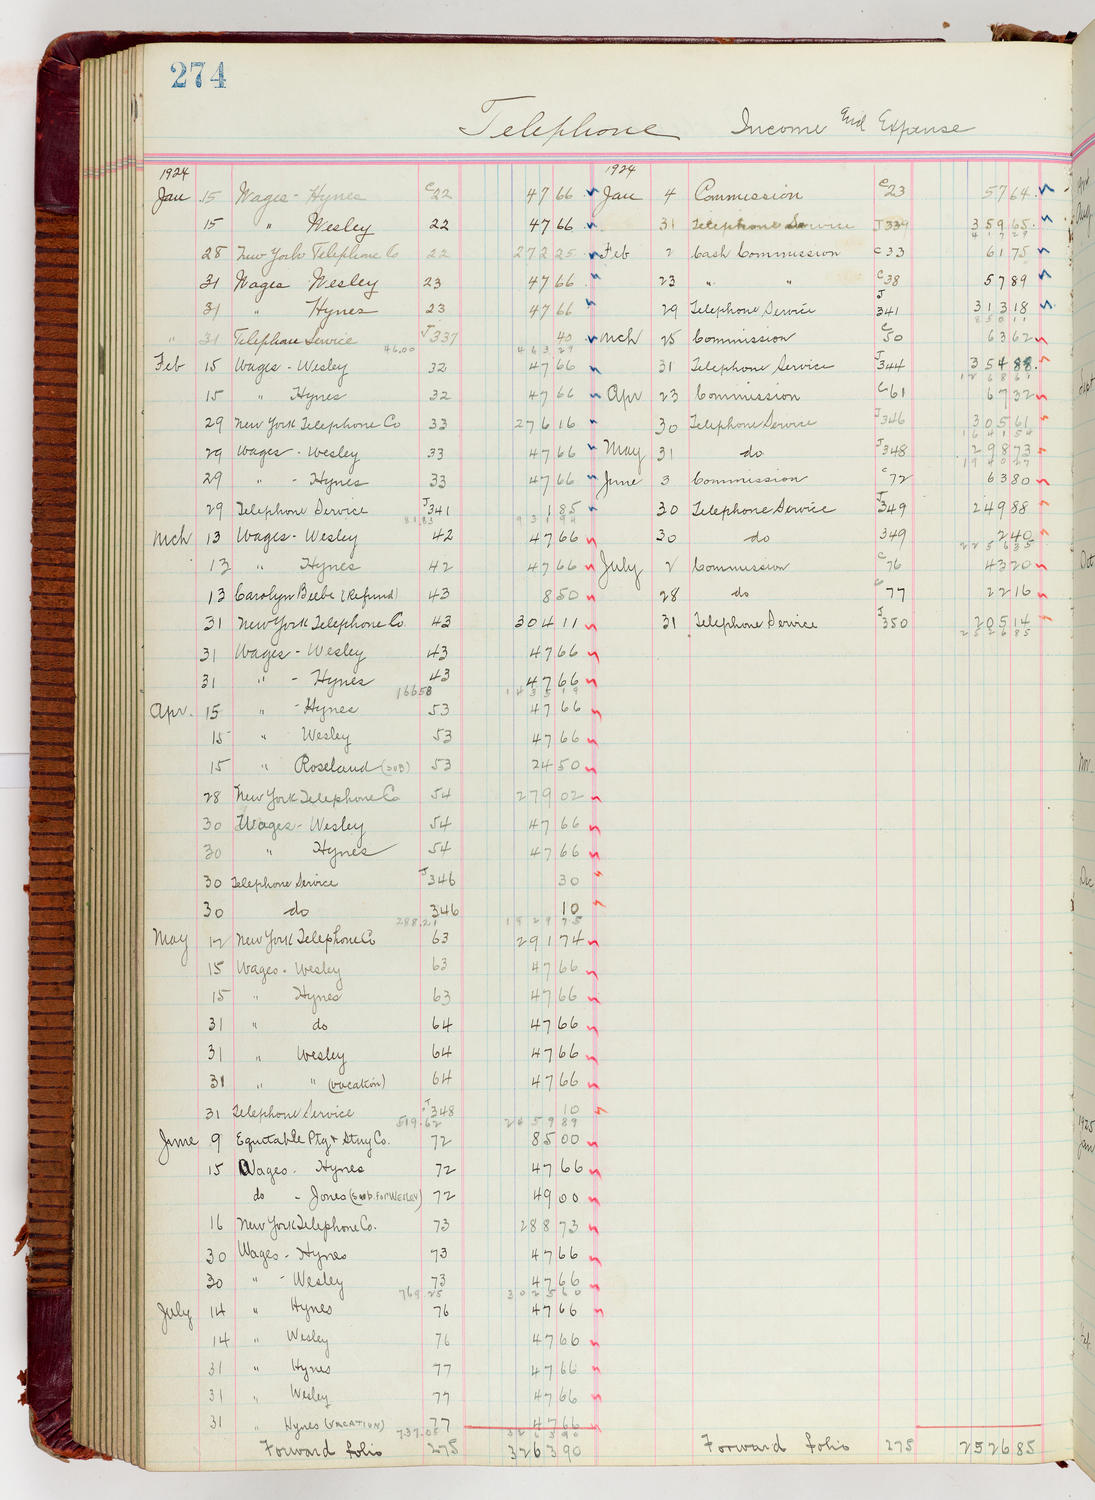 274
Telephone Income and Expense
1924
Jan 15 Wages - Hynes C22 47 66
15 " Wesley 22 47 66
28 New York Telephone Co 22 272 25
31 Wages Wesley 23 47 66
31 " Hynes 23 47 66
" 31 Telephone Service J337 40
46.00 463 29
Feb 15 Wages - Wesley 32 47 66
15 " Hynes 32 47 66
29 New York Telephone Co 33 276 16
29 Wages - Wesley 33 47 66
29 " - Hynes 33 47 66
29 Telephone Service J341 1 85
81.83 931 94
Mch 13 Wages - Wesley 42 47 66
13 " Hynes 42 47 66
13 Carolyn Beebe (Refund) 43 8 50
31 New York Telephone Co 43 304 11
31 Wages - Wesley 43 47 66
31 " - Hynes 43 47 66
166 58 1435 19
Apr. 15 " - Hynes 53 47 66
15 " Wesley 53 47 66
15 " Roseland (SUB) 53 24 50
28 New York Telephone Co 54 279 02
30 Wages - Wesley 54 47 66
30 " Hynes 54 47 66
30 Telephone Service J346 30
30 do 346 10
288.21 1929 75
May 12 New York Telephone Co 63 291 74
15 Wages - Wesley 63 47 66
15 " Hynes 63 47 66
31 " do 64 47 66
31 " Wesley 64 47 66
31 " " (vacation) 64 47 66
31 Telephone Service J348 10
519.62 2459 89
June 9 Equitable Ptg & Stny Co. 72 85 00
15 Wages - Hynes 72 47 66
do - Jones (sub. for WESLEY) 72 49 00
16 New York Telephone Co. 73 288 73
30 Wages - Hynes 73 47 66
30 " - Wesley 73 47 66
769.25 3025 60
July 14 " Hynes 76 47 66
14 " Wesley 76 47 66
31 " Hynes 77 47 66
31 " Wesley 77 47 66
31 " Hynes (VACATION) 77 47 66
737.05 3263 90
Forward folio 275 3263 90
1924
Jan 4 Commission C23 57 64
31 Telephone Service J339 359 65
417 29
Feb 2 Cash Commission C33 61 75
23 " " C38 57 89
29 Telephone Service J341 313 18
850 11
Mch 25 Commission C50 63 62
31 Telephone Service J344 354 88
1268 61
Apr 23 Commission C61 67 32
30 Telephone Service J346 305 61
1641 54
May 31 do J348 298 73
1940 27
June 3 Commission C72 63 80
30 Telephone Service J349 249 88
30 do 349 2 40
2256 35
July 2 Commission C76 43 20
28 do C77 22 16
31 Telephone Service J350 205 14
2526 85
Forward folio 275 2526 85
Apr
Aug
Sept
Oct
Nov
Dec
1925
Jan